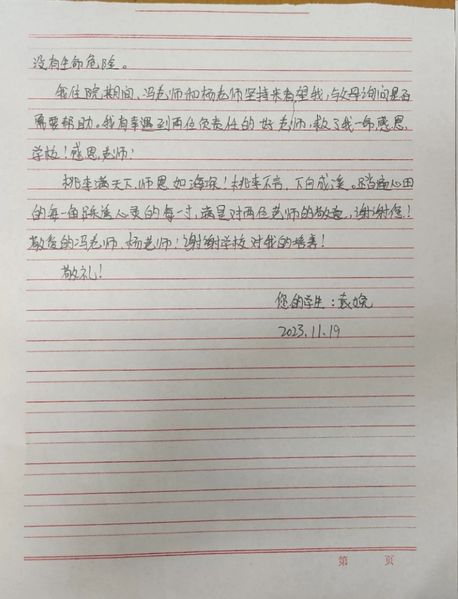 没有生命危险。
我住院期间、冯老师和杨老师坚持来看望我,与父母询问是否
需要帮助。我有幸遇到两位负责任的好老师,救了我一命,感恩
学校!感恩老师!
桃李满天下,师恩如海深!桃李不言,下自成溪。踏遍心田
的每一角,踩透心灵的每一寸,满是对两位老师的敬意,谢谢您!
敬爱的冯老师、杨老师!谢谢学校对我的培养!
敬礼!
您的学生:袁
2023.11.19
第 页